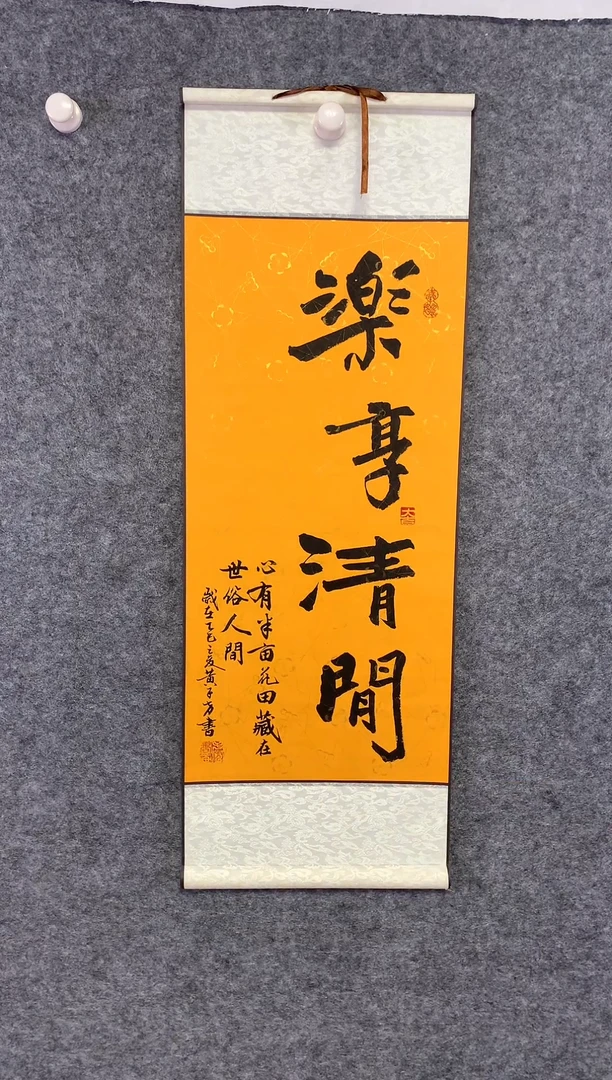 樂享清閒
心有半亩花田藏在
世俗人間
歲在乙巳之夏黄子方書